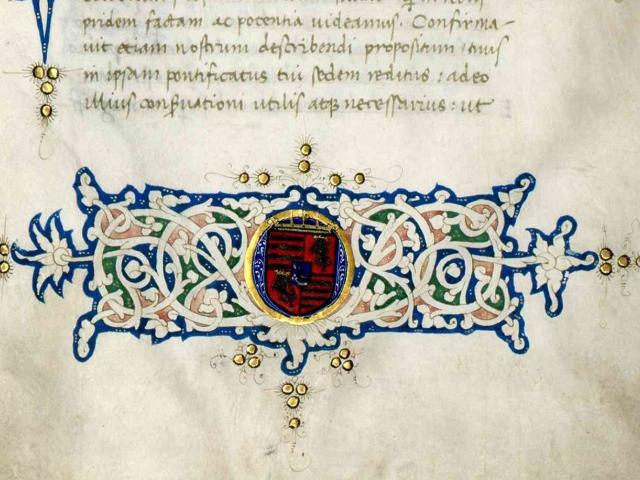 pridem factam ac potentia uideamus. Confirma-
uit etiam nostrum describendi propositum tuus
in ipsam pontificatus tui sedem reditus : adeo
illius conseruationi utilis atq; necessarius : ut